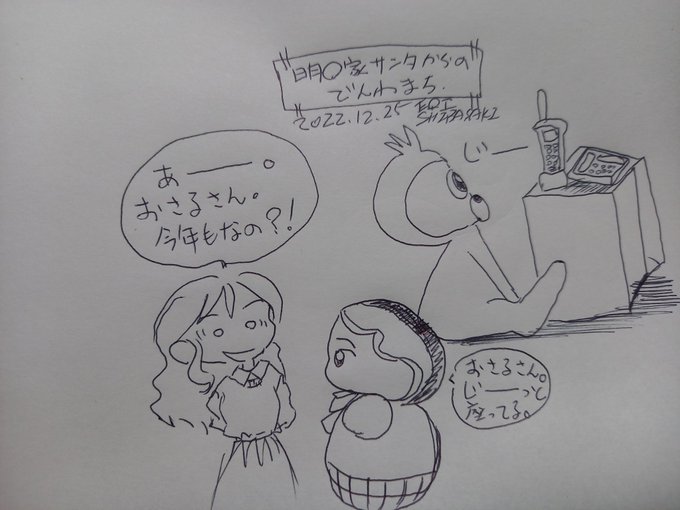 明〇家サンタからの
でんわまち.
2022.12.25 EQI
SHIBASAKI
じー
あー。
おさるさん。
今年もなの?!
おさるさん。
じーっと
座ってる。